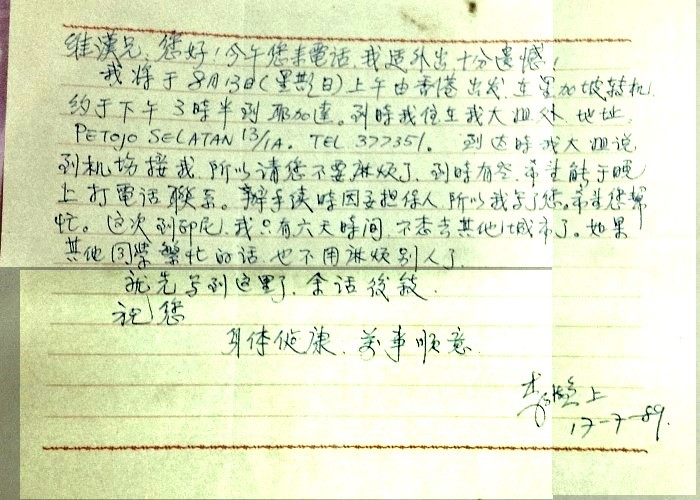 维漢兄、您好！今午您来電話，我适外出十分遺憾！
我将于8月13日(星期日)上午由香港出发，在星加坡转机
約于下午3時半到耶加達。到時我住在我大姐处，地址
PETOJO SELATAN 13/1A. TEL 377351. 到达時我大姐说
到机場接我，所以请您不要麻烦了，到時有空，希望能于晚
上打電話聯系。辦手续時因要担保人，所以我写了您。希望您幫
忙。这次到印尼，我只有六天時间，不想去其他城市了。如果
其他同学繁忙的话，也不用麻烦别人了。
就先写到这里了，余话後敍。
祝您
身体健康、万事順意
李 上
17-7-89.